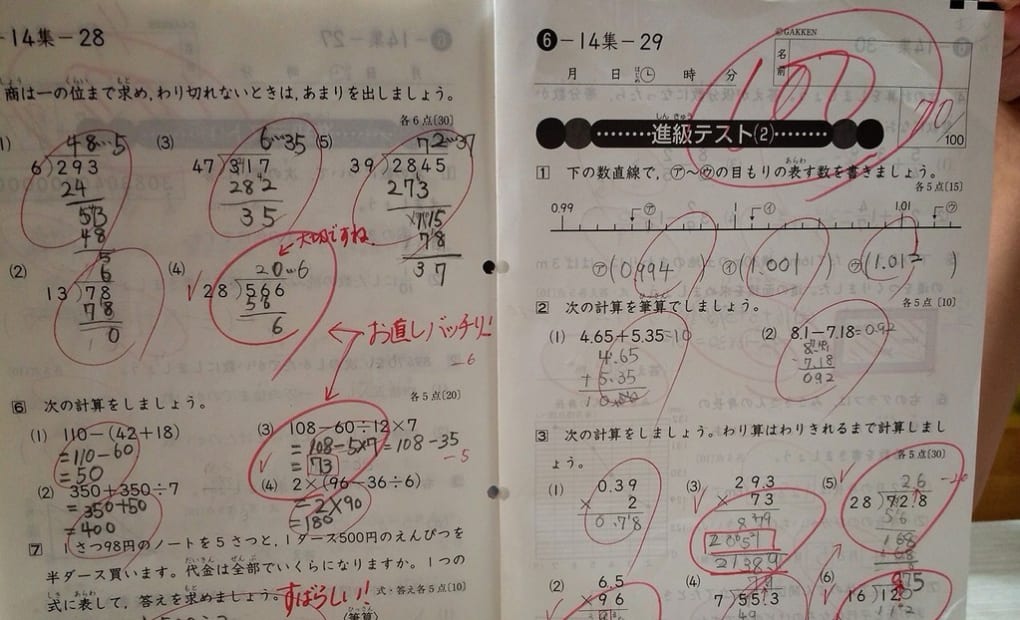 -14集-28
商は一の位まで求め,わり切れないときは,あまりを出しましょう。
各6点〔30〕
48…5
6)293
24
53
48
5
(3)
6…35
47)317
282
35
(5)
72…37
39)2845
273
115
78
37
(2)
6
13)78
78
0
(4)
20…6
28)566
56
6
大切ですね
お直しバッチリ!!
-6
6 次の計算をしましょう。
各5点〔20〕
(1) 110-(42+18)
=110-60
=50
(2) 350+350÷7
=350+50
=400
(3) 108-60÷12×7
=108-5×7=108-35
=73
-5
(4) 2×(96-36÷6)
=2×90
=180
7 1さつ98円のノートを5さつと,1ダース500円のえんぴつを
半ダース買います。代金は全部でいくらになりますか。1つの
式に表して,答えを求めましょう。
式・答え各5点〔10〕
すばらしい!!
(筆算)
6-14集-29
©GAKKEN
月 日 時 分
名前
107
/100
進級テスト(2)
1 下の数直線で,㋐~㋒の目もりの表す数を書きましょう。
各5点〔15〕
0.99 ㋐ 1 ㋑ 1.01 ㋒
㋐(0.994) ㋑(1.001) ㋒(1.012)
2 次の計算を筆算でしましょう。
各5点〔10〕
(1) 4.65+5.35=10
4.65
+5.35
(2) 8.1-7.18=0.92
7.18
092
3 次の計算をしましょう。わり算はわりきれるまで計算しましょう。
各5点〔30〕
(1) 0.39
× 2
0.78
(3) 293
× 73
879
2051
21389
(5) 26
28)728
56
168
168
(2) 6.5
×96
(4)
7)55.3
49
(6)
16)12
112